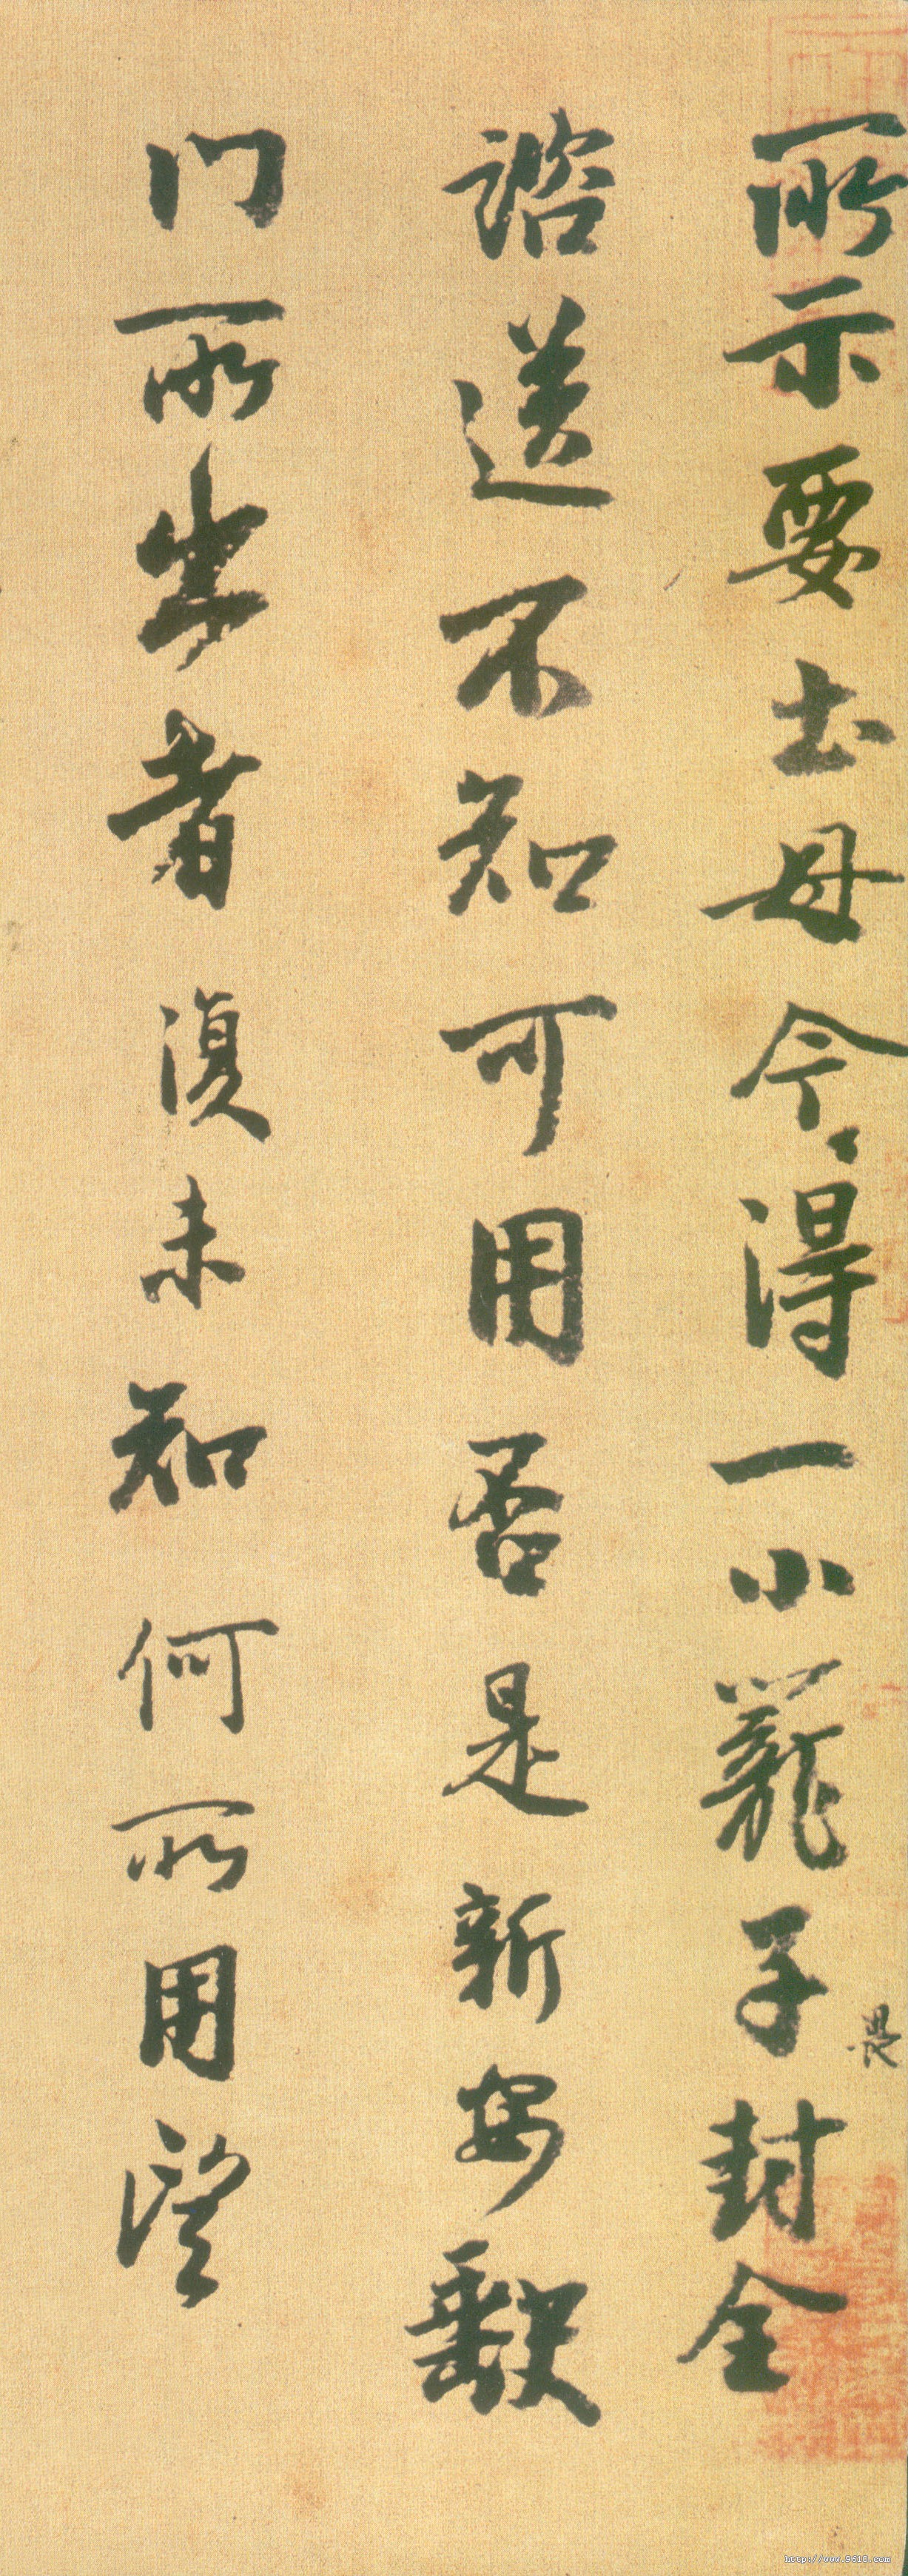 所示要土母今得一小籠子封全
諮送不知可用否是新安缺
門所出者復未知何所用望
http://www.9610.com